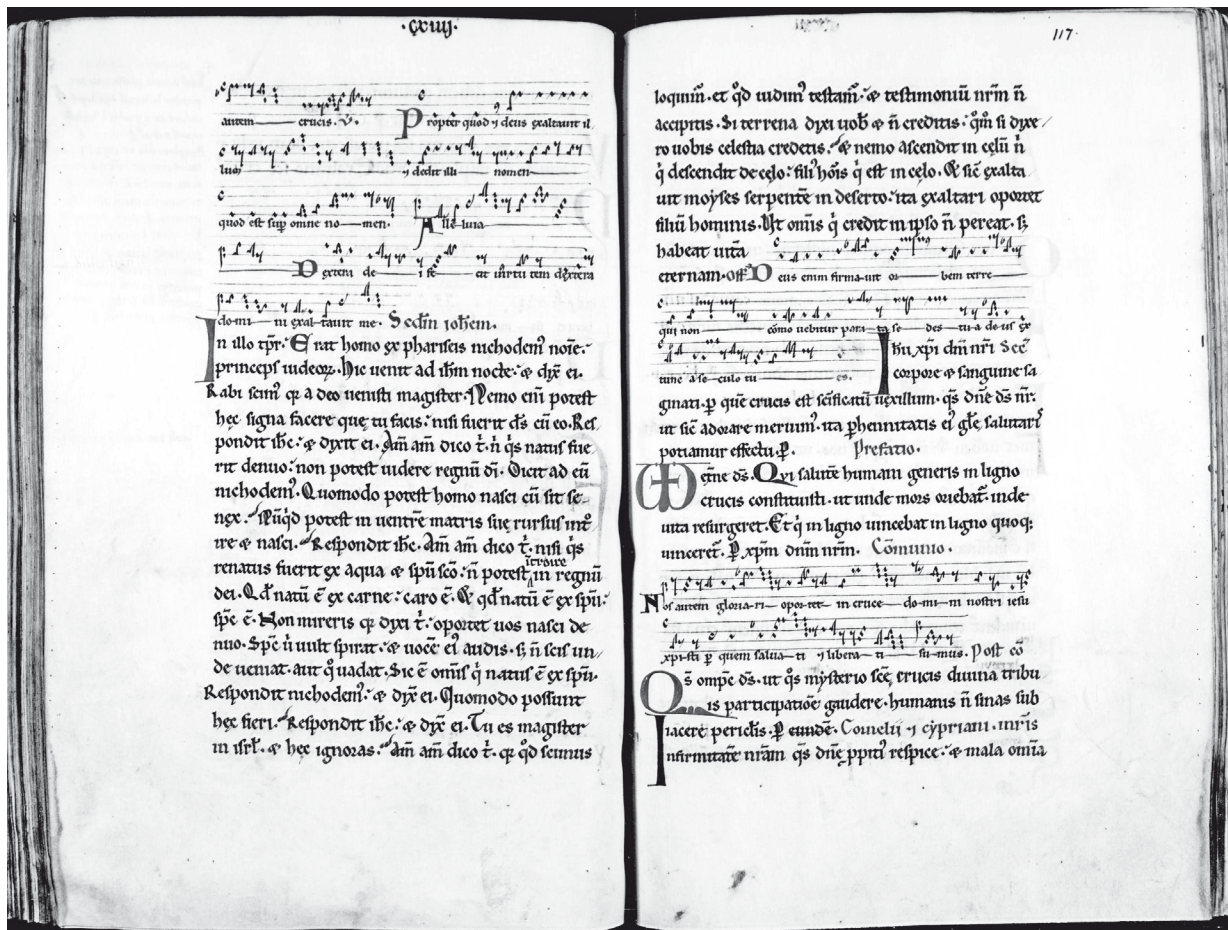 ·cxiiij·
autem crucis. v̄. Propter quod ⁊ deus exaltauit il
lum ⁊ dedit illi nomen
quod est sup̄ omne no men. Alle luia
Dextera de i fe cit uirtu tem dextera
do mi ni exal tauit me. Sc̄dm ioh̄em.
In illo tp̄r. Erat homo ex phariseis nichodem' noīe.
princeps iudeoꝝ. Hic uenit ad ih̄m nocte. & dix̄ ei.
Rabi scim' q̄a a deo uenisti magister. Nemo eni potest
hęc signa facere quę tu facis. nisi fuerit d̄s cū eo. Res
pondit ih̄c. & dixit ei. Am̄ am̄ dico t̄. n̄ q̄s natus fue
rit denuo. non potest uidere regnū dī. Dicit ad eū
nichodem'. Quomodo potest homo nasci cū sit se
nex. Nūq̄d potest in uentrē matris suę rursus int°
ire & nasci. Respondit ih̄c. Am̄ am̄ dico t̄. nisi q̄s
renatus fuerit ex aqua & sp̄u sc̄o. n̄ potest introire in regnū
dei. Qd̄ natū ē ex carne. caro ē. & qd̄ natū ē ex sp̄u.
sp̄c ē. Non mireris q̄a dixi t̄. oportet uos nasci de
nuo. Sp̄c ū uult spirat. & uocē ei' audis. s; n̄ scis un
de ueniat. aut q° uadat. Sic ē omīs q̄ natus ē ex sp̄u.
Respondit nichodem'. & dix̄ ei. Quomodo possunt
hęc fieri. Respondit ih̄c. & dix̄ ei. Tu es magister
in isrl̄. & hęc ignoras. Am̄ am̄ dico t̄. q̄a qd̄ scimus
117
loquim̄. et qd̄ uidim' testam̄. & testimoniū nr̄m n̄
accipitis. Si terrena dixi uob̄ & n̄ creditis. qm̄ si dixe
ro uobis celestia credetis. & nemo ascendit in cęlū n̄
q̄ descendit de cęlo. fili' hōīs q̄ est in cęlo. & sic̄ exalta
uit moyses serpentē in deserto. ita exaltari oportet
filiū hominis. Ut omīs q̄ credit in ipso n̄ pereat. s;
habeat uitā
eternam. off̄ Deus enim firma uit or bem terre
qui non como uebitur para ta se des tu a deus ex
Ih̄u xp̄i dn̄i nr̄i Sc̄e
tunc a se culo tu es. corpore & sanguine sa
ginati. p̄ quē crucis est sc̄ificatū uexillum. q̄s dn̄e d̄s nr̄.
ut sic̄ adorare meruim'. ita p̄hennitatis ei' gl̄ę salutari
potiamur effectu. p̄. Prefatio.
etn̄e d̄s. Qui salutē humani generis in ligno
crucis constituisti. ut unde mors oriebat̄. inde
uita resurgeret. Et q̄ in ligno uincebat in ligno quoq;
uinceret̄. p̄ xp̄m dn̄m nr̄m. Cōmunio.
Nos autem gloria ri opor tet in cruce do mi ni nostri iesu
xpi sti p̄ quem salua ti ⁊ libera ti su mus. Post cō
Q̄s omp̄c d̄s. ut q̄s mysterio sc̄ę crucis diuina tribu
is participatiōe gaudere. humanis n̄ sinas sub
iacere periclis. p̄ eundē. Cornelii ⁊ cypriani. mr̄is
Infirmitatē nr̄am q̄s dn̄e p̄piti' respice. & mala omīa